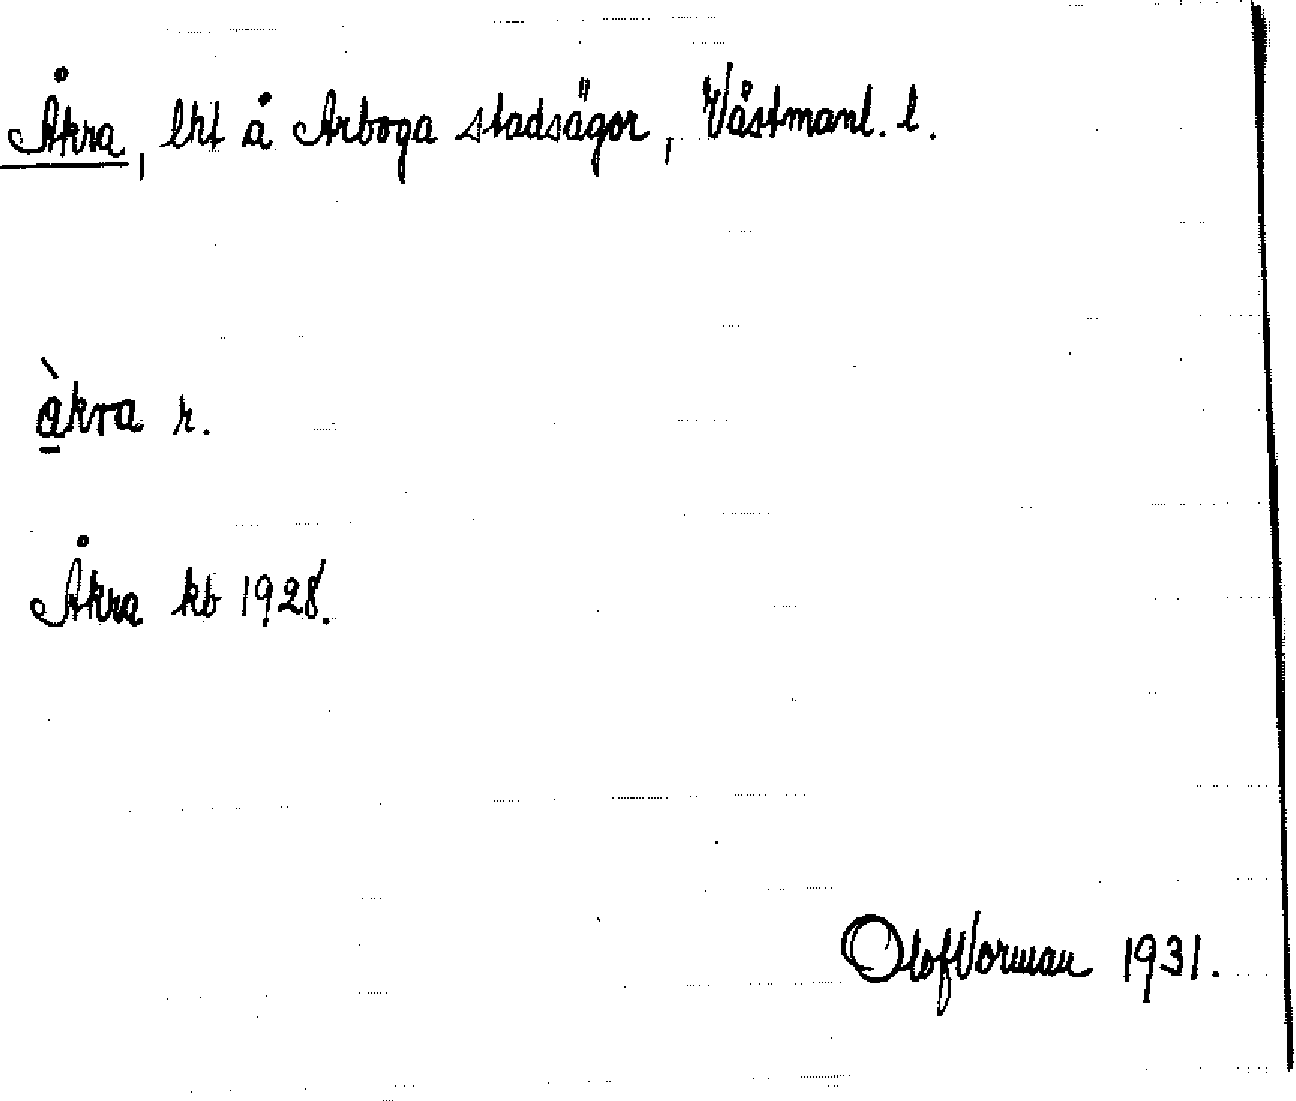 Åkra, lht å Arboga stadsägor, Västmanl. l.
à̲kra r.
Åkra kb 1928.
Olof Vorman 1931.